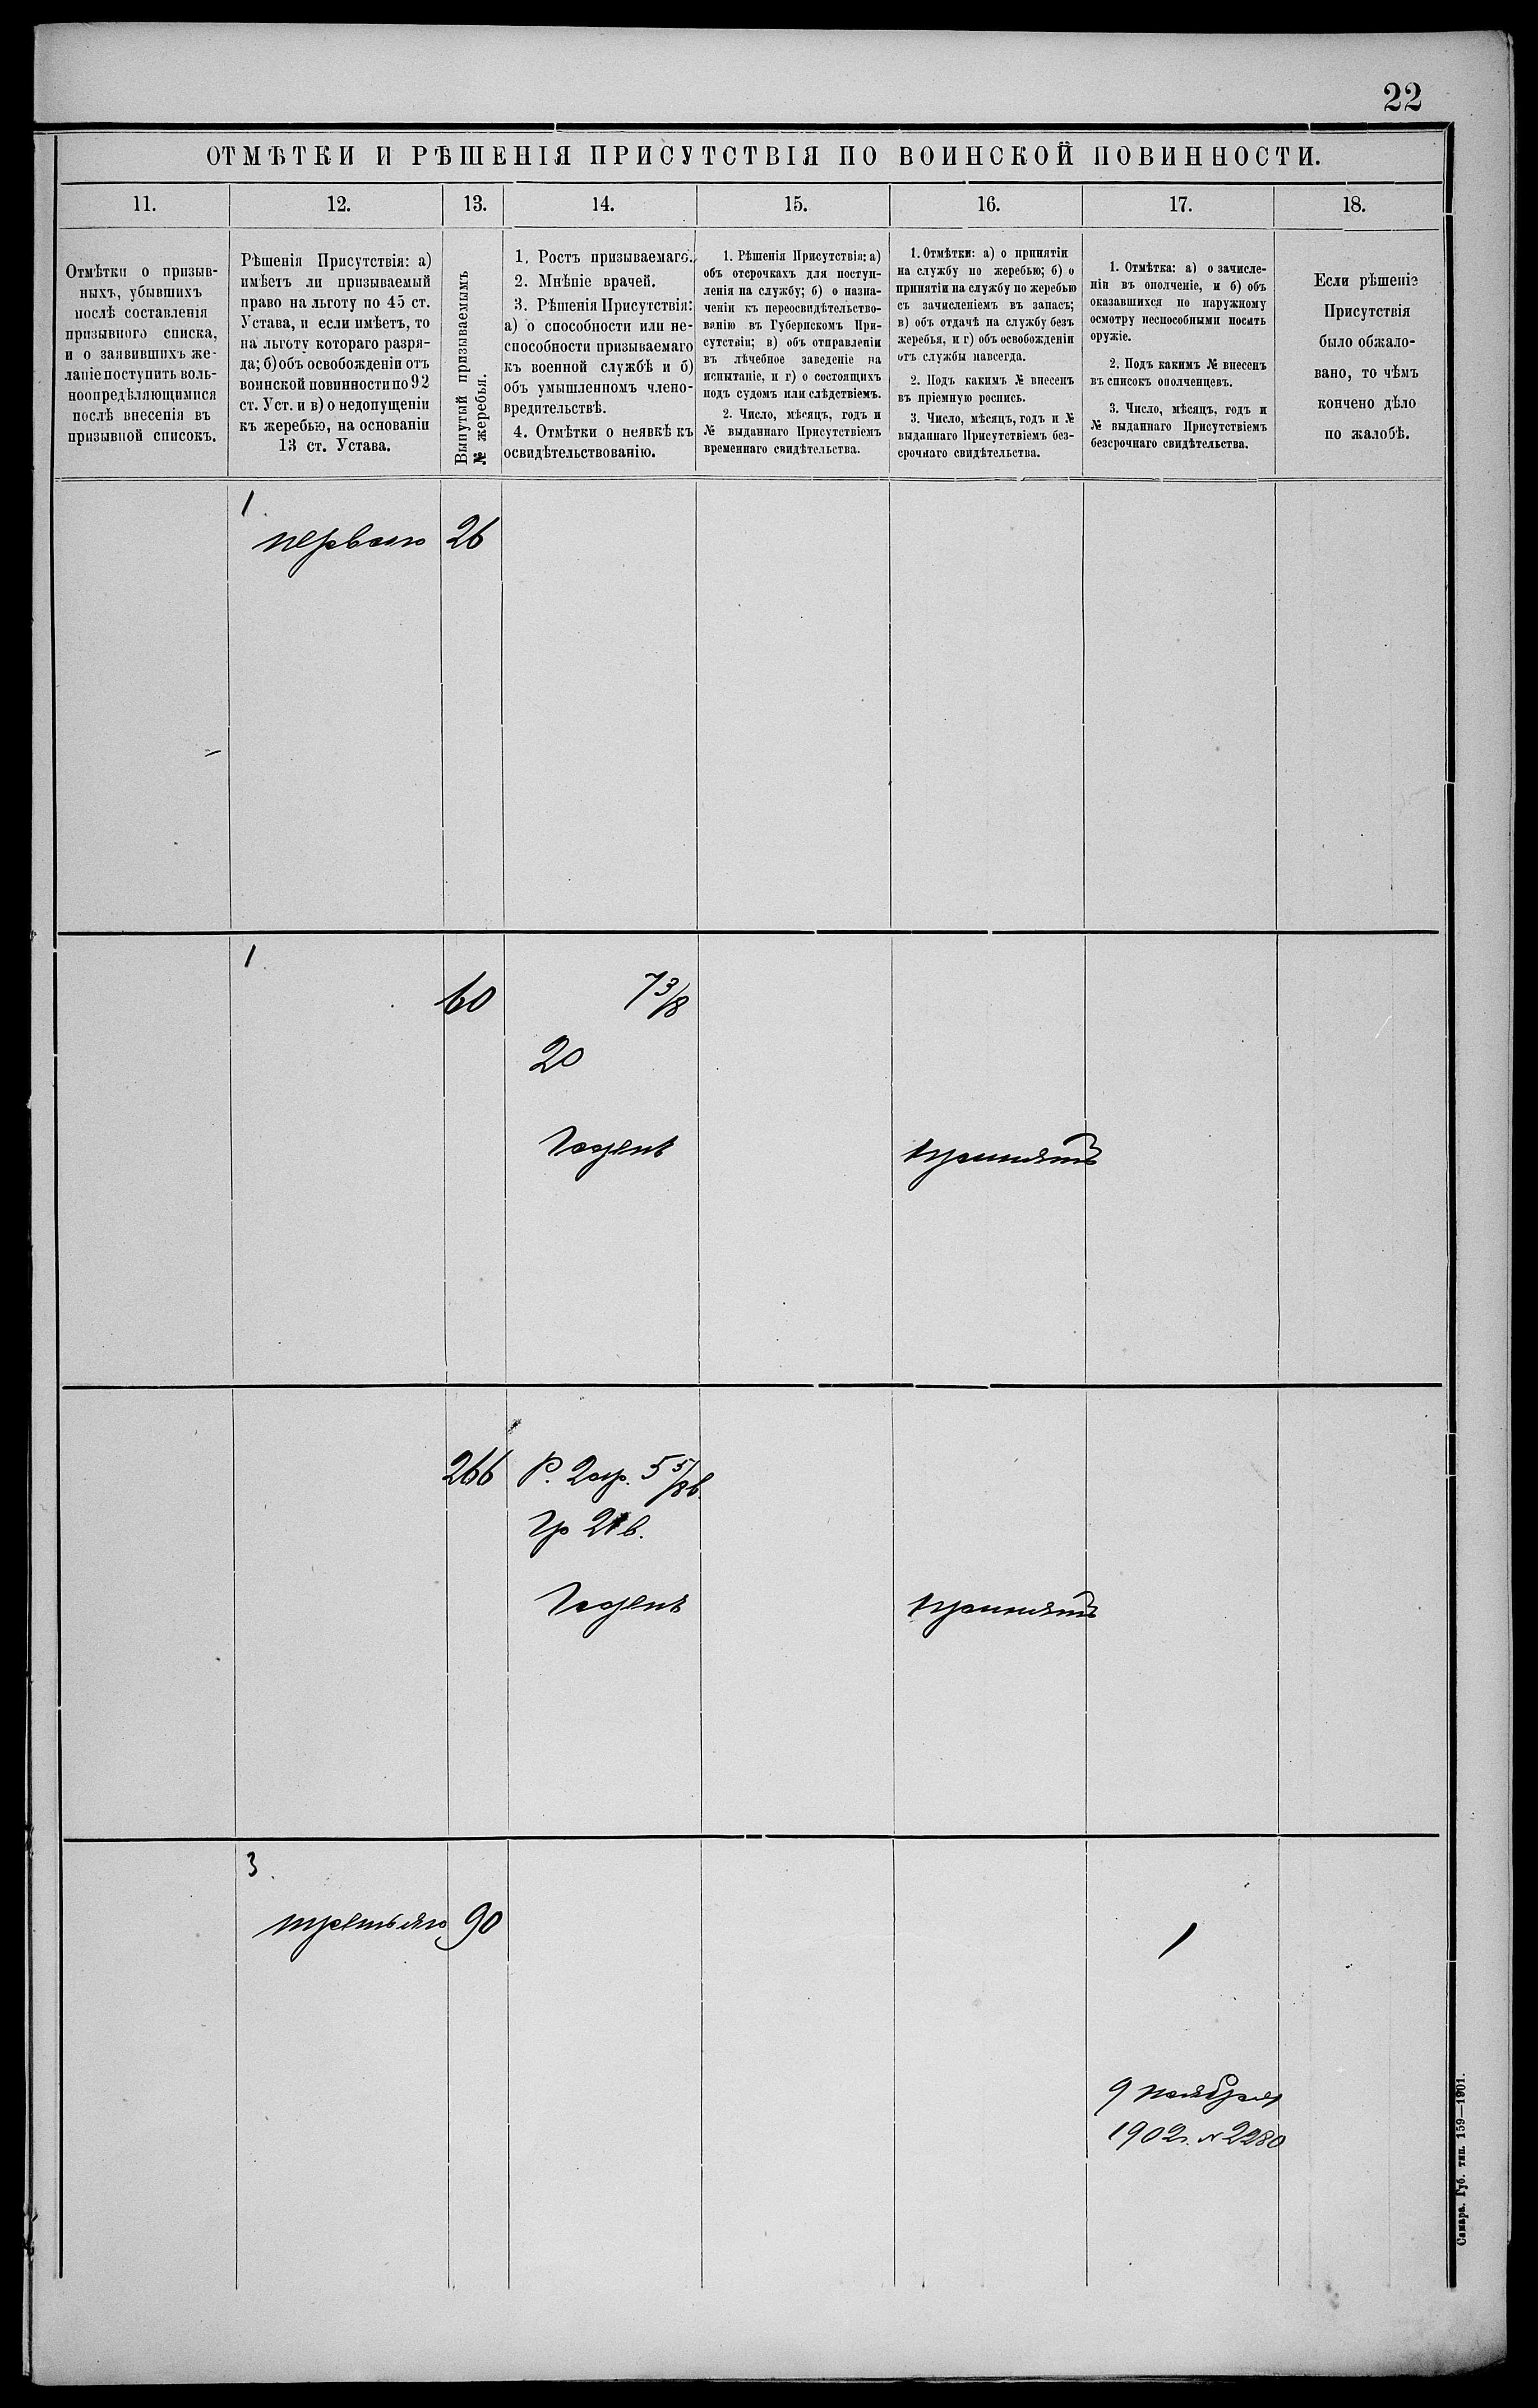 22
ОТМѢТКИ И РѢШЕНІЯ ПРИСУТСТВІЯ ПО ВОИНСКОЙ ПОВИННОСТИ.
11.
12.
13.
14.
15.
16.
17.
18.
Отмѣтки о призыв-
ныхъ, убывшихъ
послѣ составленія
призывного списка,
и о заявившихъ же-
ланіе поступить воль-
ноопредѣляющимися
послѣ внесенія въ
призывной списокъ.
Рѣшенія Присутствія: а)
имѣетъ ли призываемый
право на льготу по 45 ст.
Устава, и если имѣетъ, то
на льготу котораго разря-
да; б) объ освобожденіи отъ
воинской повинности по 92
ст. Уст. и в) о недопущеніи
къ жеребью, на основаніи
13 ст. Устава.
Вынутый призываемымъ
№ жеребья.
1. Ростъ призываемаго.
2. Мнѣніе врачей.
3. Рѣшенія Присутствія:
а) о способности или не-
способности призываемаго
къ военной службѣ и б)
объ умышленномъ члено-
вредительствѣ.
4. Отмѣтки о неявкѣ къ
освидѣтельствованію.
1. Рѣшенія Присутствія: а)
объ отсрочкахъ для поступ-
ленія на службу; б) о назна-
ченіи къ переосвидѣтельство-
ванію въ Губернскомъ При-
сутствіи; в) объ отправленіи
въ лѣчебное заведеніе на
испытаніе, и г) о состоящихъ
подъ судомъ или слѣдствіемъ.
2. Число, мѣсяцъ, годъ и
№ выданнаго Присутствіемъ
временнаго свидѣтельства.
1. Отмѣтки: а) о принятіи
на службу по жеребью; б) о
принятіи на службу по жеребью
съ зачисленіемъ въ запасъ;
в) объ отдачѣ на службу безъ
жеребья, и г) объ освобожденіи
отъ службы навсегда.
2. Подъ какимъ № внесенъ
въ пріемную роспись.
3. Число, мѣсяцъ, годъ и №
выданнаго Присутствіемъ без-
срочнаго свидѣтельства.
1. Отмѣтка: а) о зачисле-
ніи въ ополченіе, и б) объ
оказавшихся по наружному
осмотру неспособными носить
оружіе.
2. Подъ какимъ № внесенъ
въ списокъ ополченцевъ.
3. Число, мѣсяцъ, годъ и
№ выданнаго Присутствіемъ
безсрочнаго свидѣтельства.
Если рѣшеніе
Присутствія
было обжало-
вано, то чѣмъ
кончено дѣло
по жалобѣ.
1
перваго 26
1
60 7 3/8
20
Годенъ принятъ
266 Р. 2 ар. 5 5/8 в.
Гр 21 в.
Годенъ принятъ
3
третьяго 90
1
9 ноября
1902 г. № 2280
Самара. Губ. тип. 159—1901.